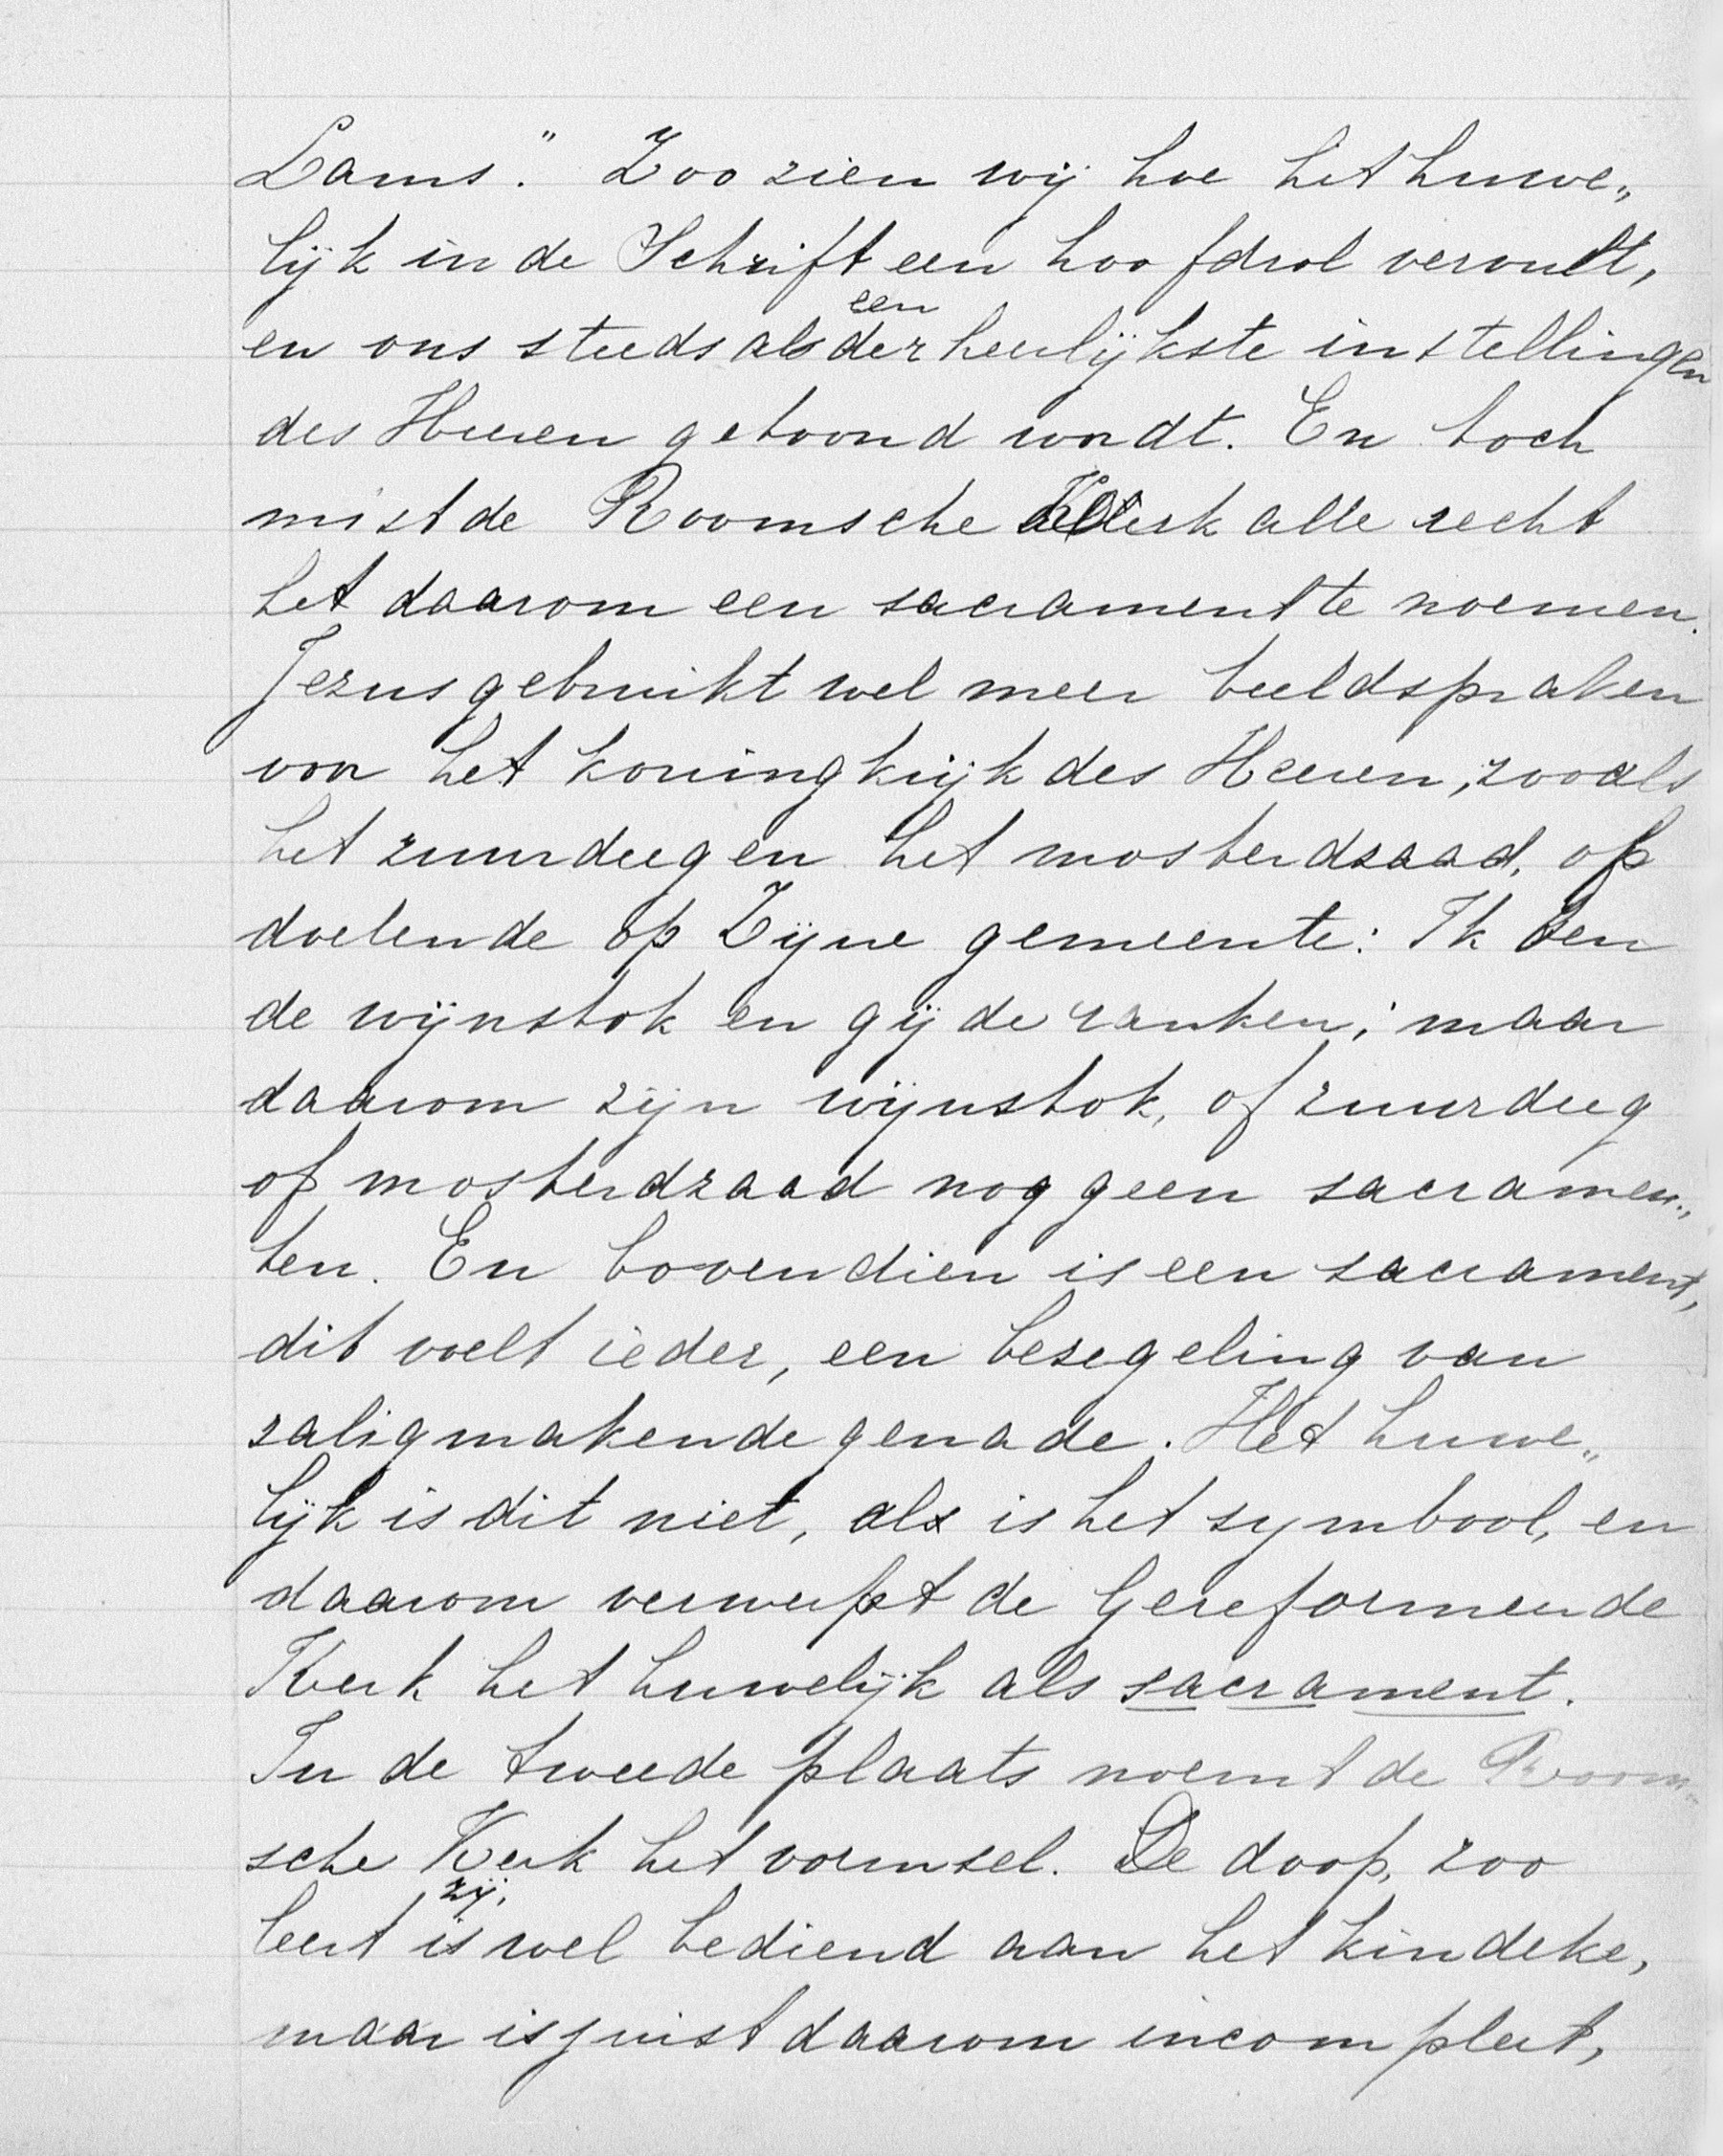 Lams." Zoo zien wij hoe het huwe„
lijk in de Schrift een hoofdrol vervult,
en ons steeds als een der heerlijkste instellingen
des Heeren getoond wordt. En toch
mist de Roomsche Kerk alle recht
het daarom een sacrament te noemen.
Jezus gebruikt wel meer beeldspraken
voor het koningkrijk des Heeren, zooals
het zuurdeeg en het mosterdzaad, of
doelende op Zijne gemeente: Ik ben
de wijnstok en gij de ranken; maar
daarom zijn wijnstok, of zuurdeeg
of mosterdzaad nog geen sacramen„
ten. En bovendien is een sacrament,
dit voelt ieder, een bezegeling van
zaligmakende genade. Het huwe„
lijk is dit niet, als is het symbool, en
daarom verwerpt de Gereformeerde
Kerk het huwelijk als sacrament.
In de tweede plaats noemt de Room„
sche Kerk het vormsel. De doop, zoo
leert zij, is wel bediend aan het kindeke,
maar is juist daarom incompleet,